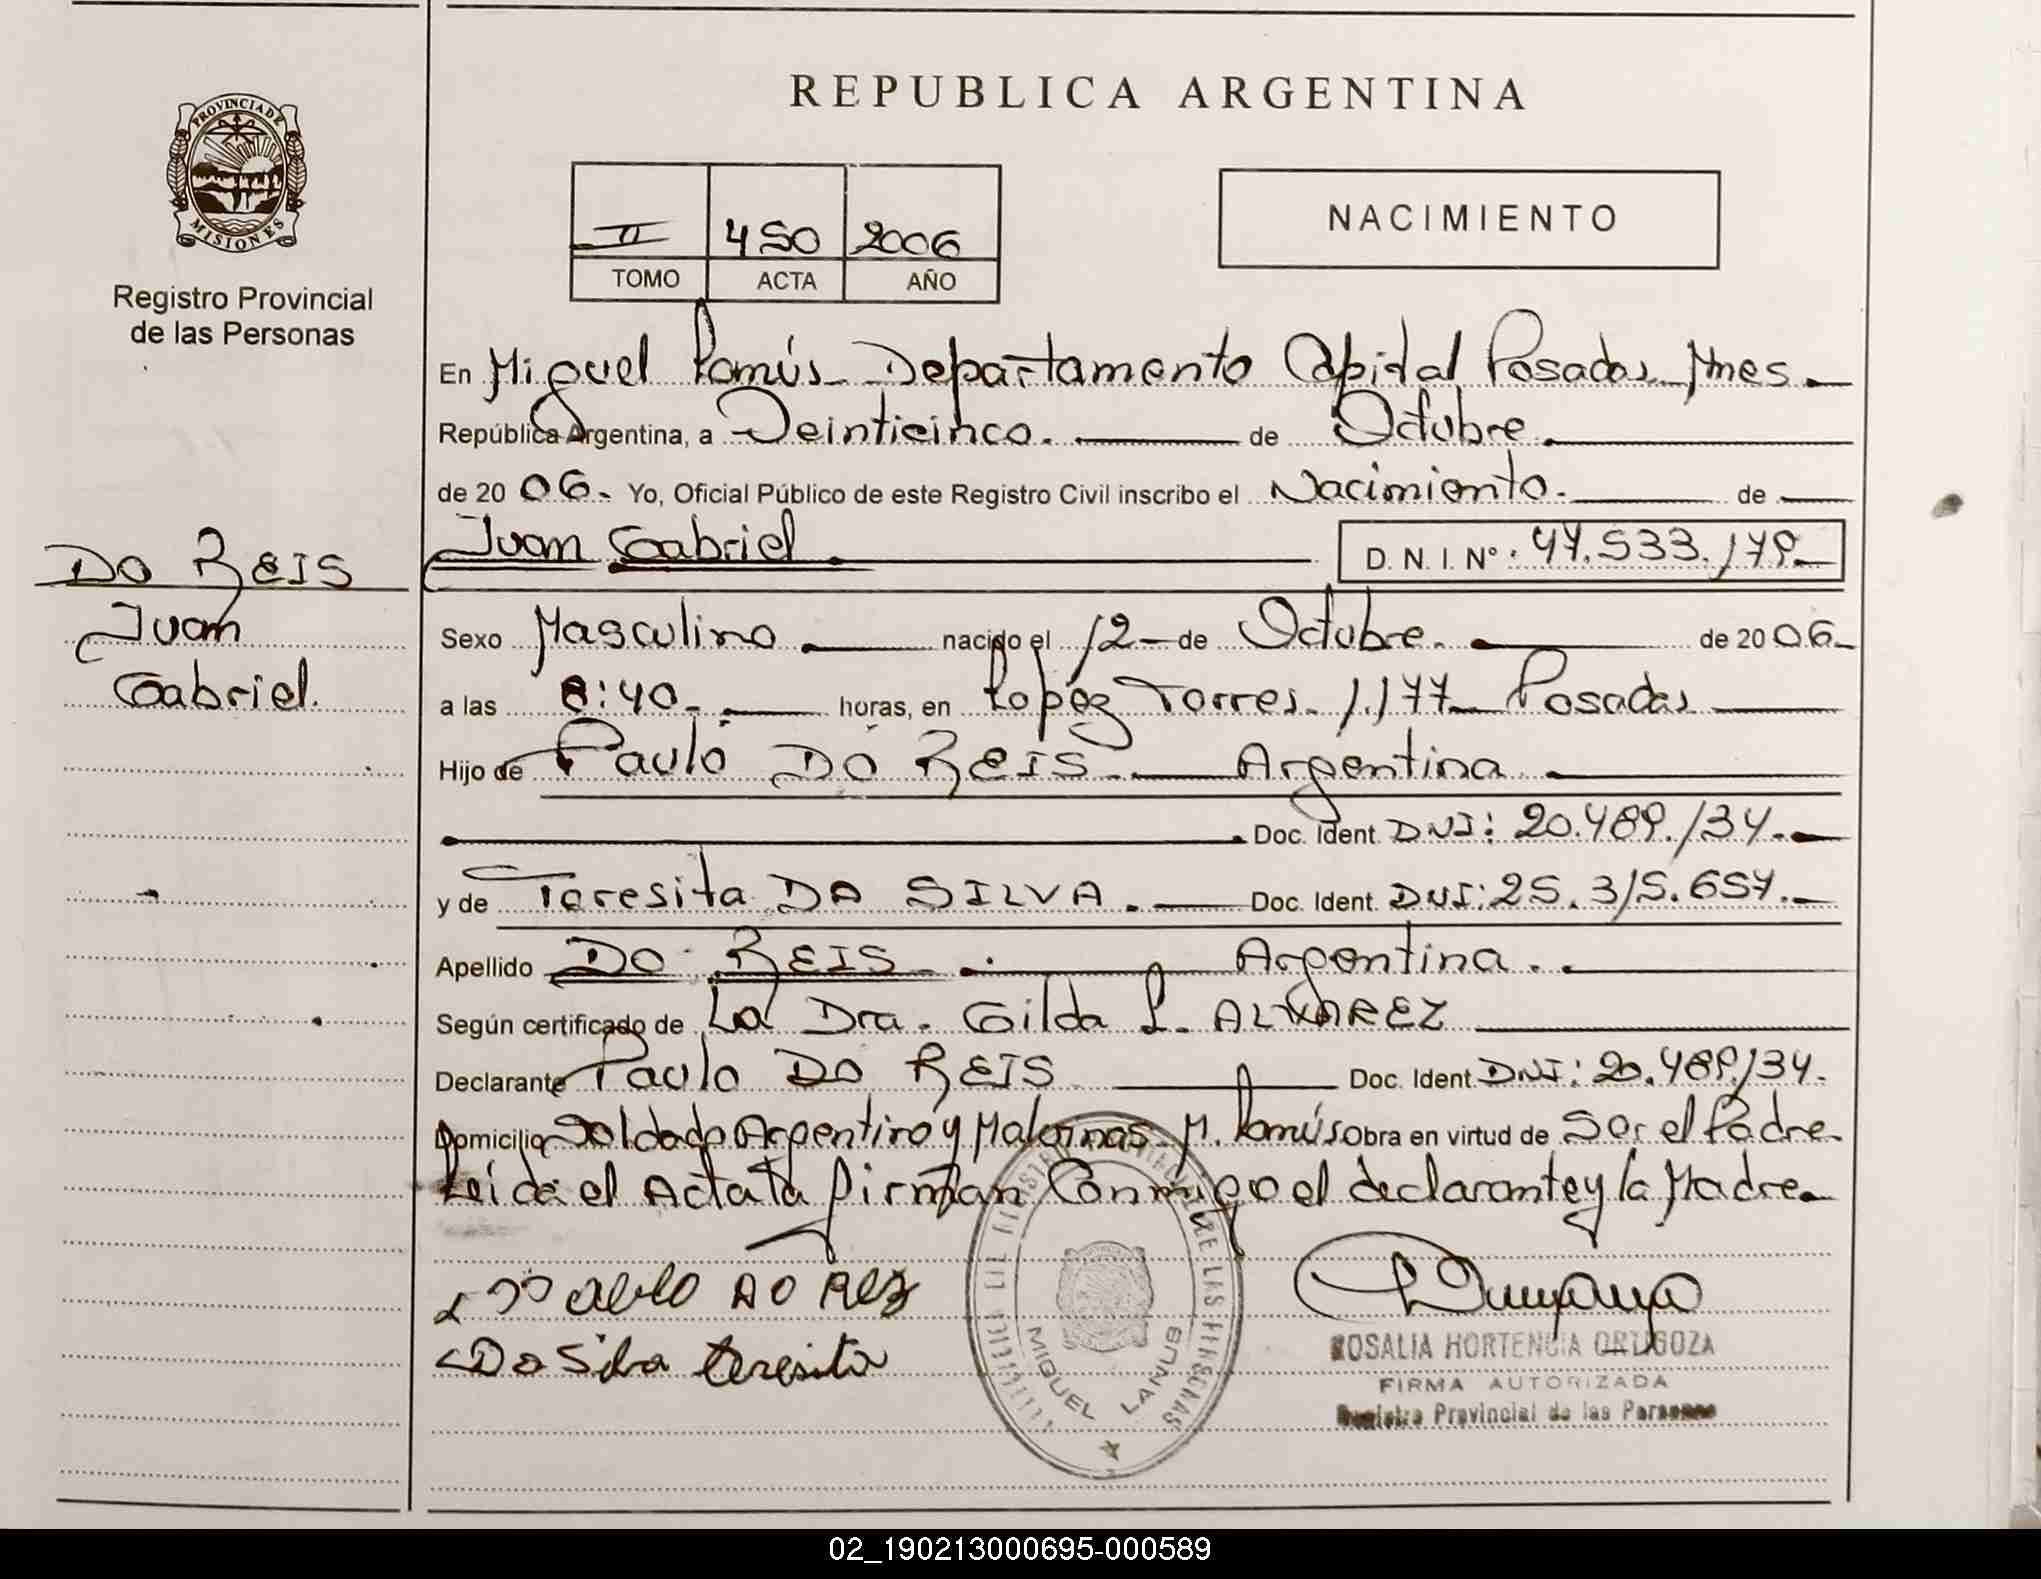 REPUBLICA ARGENTINA
PROVINCIA DE
MISIONES
Registro Provincial
de las Personas
II 450 2006
TOMO ACTA AÑO
NACIMIENTO
En Miguel Lanús Departamento Capital Posadas Mnes
República Argentina, a Veinticinco. de Octubre
de 2006. Yo, Oficial Público de este Registro Civil inscribo el Nacimiento. de
Juan Gabriel D. N. I. Nº: 47.533.179
DO REIS
Juan
Gabriel.
Sexo Masculino nacido el 12 de Octubre. de 2006
a las 8:40 horas, en Lopez Torres 1.177 Posadas
Hijo de Paulo DO REIS Argentina
Doc. Ident. DNI: 20.489.134.
y de Teresita DA SILVA. Doc. Ident. DNI: 25.315.657.
Apellido DO REIS Argentina.
Según certificado de La Dra. Gilda L. ALVAREZ
Declarante Paulo DO REIS Doc. Ident. DNI: 20.489.134.
Domicilio Soldado Argentino y Malvinas M. Lanús obra en virtud de Ser el Padre
Leida el Acta la firman Conmigo el declarante y la Madre
Da Silva teresita
MIGUEL LANUS
ROSALIA HORTENCIA ORTIGOZA
FIRMA AUTORIZADA
Registro Provincial de las Personas
02_190213000695-000589